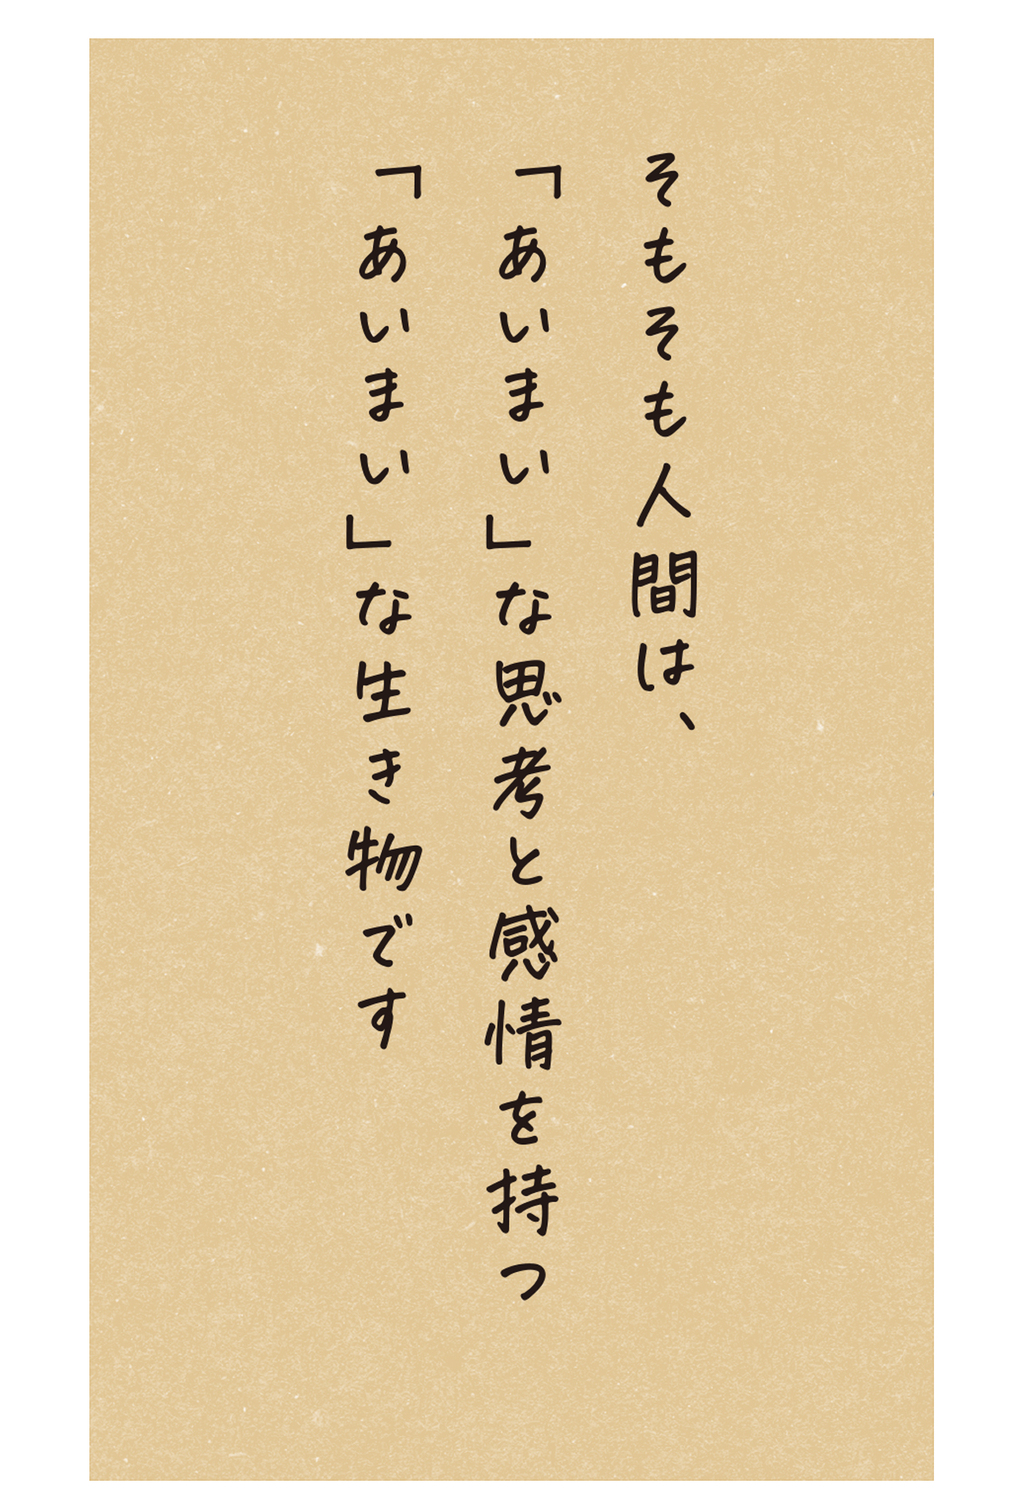 そもそも人間は、
「あいまい」な思考と感情を持つ
「あいまい」な生き物です